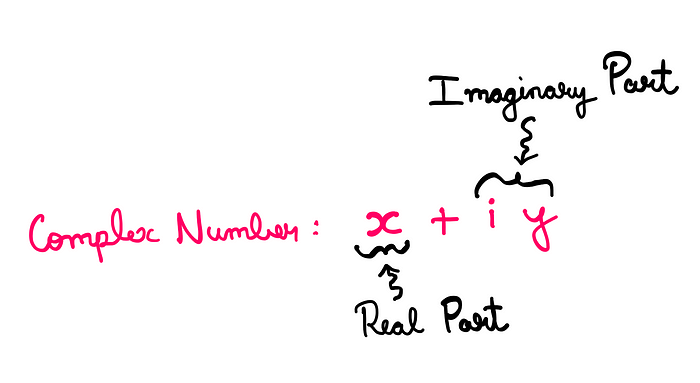 Imaginary Part
Complex Number: x + i y
Real Part